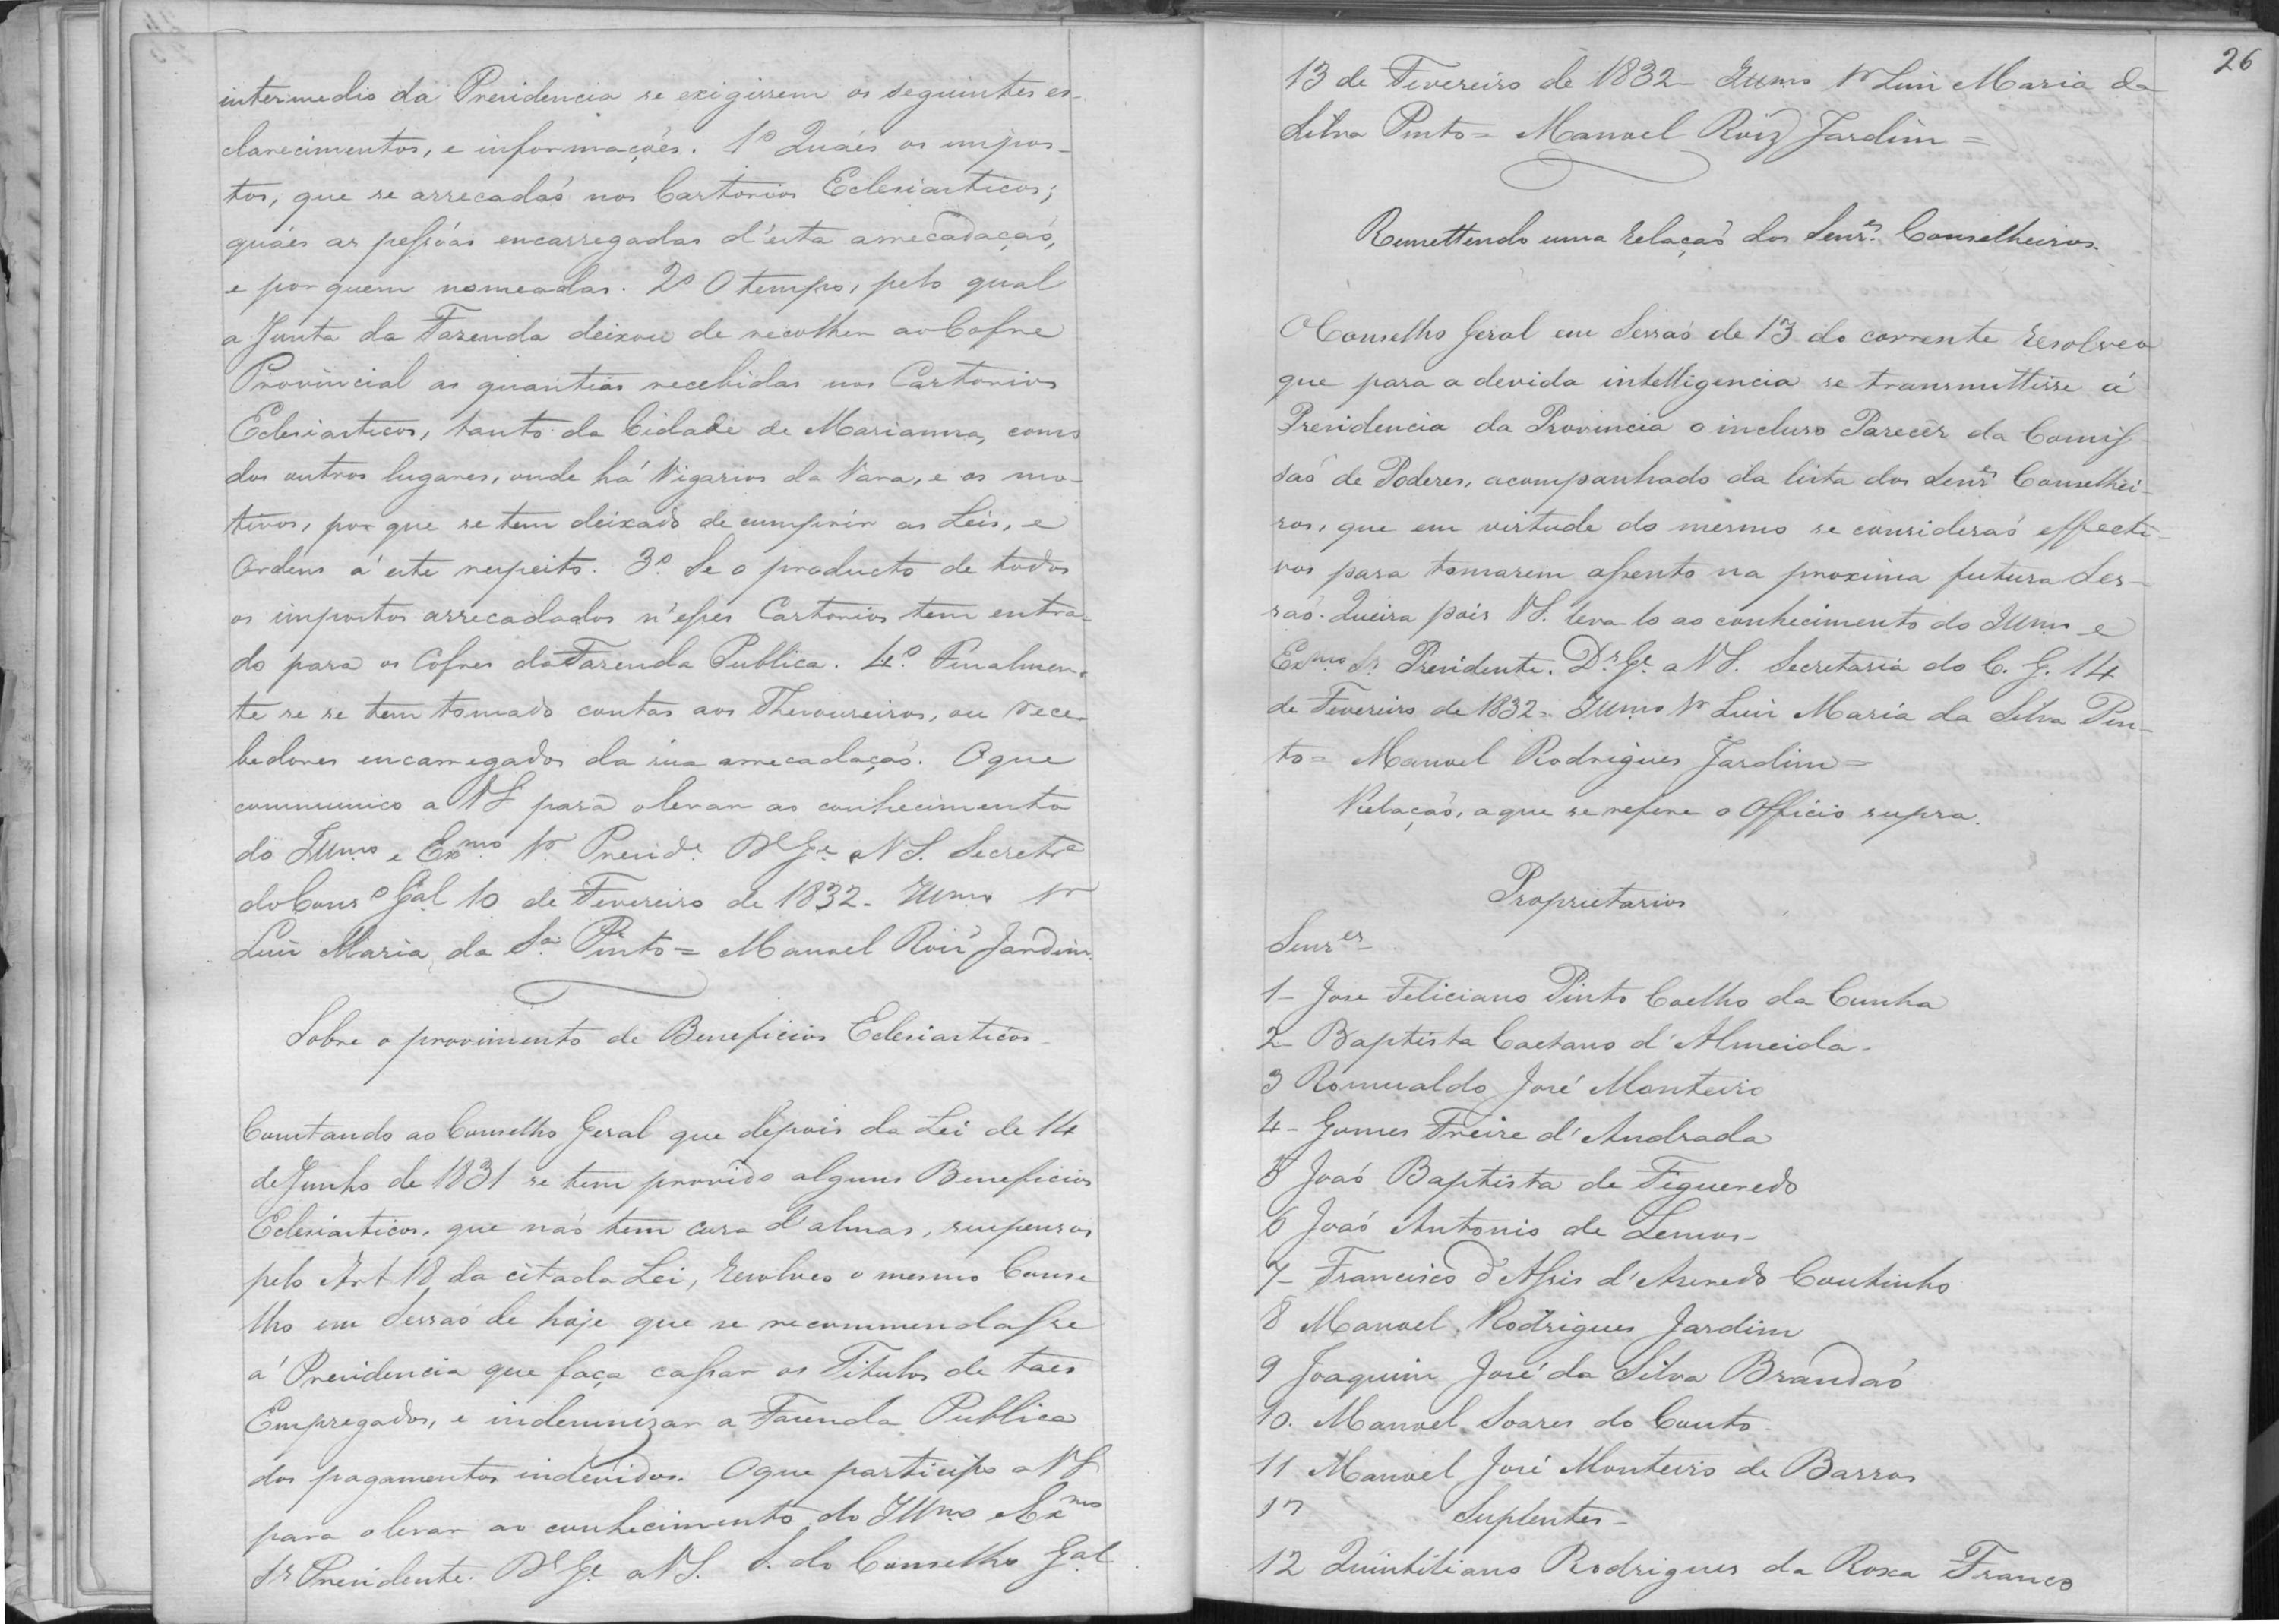 intermedio da Presidencia se exigissem os seguintes es-
clarecimentos, e informaçoẽs. 1º Quáes os impos-
tos, que se arrecadaõ nos Cartorios Eclesiasticos;
quáes as pessôas encarregadas d'esta arrecadaçaõ,
e por quem nomeadas. 2º O tempo, pelo qual
a Junta da Fazenda deixou de recolher ao Cofre
Provincial as quantias recebidas nos Cartorios
Eclesiasticos, tanto da Cidade de Marianna, como
dos outros lugares, onde há Vigarios da Vara, e os mo-
tivos, por que se tem deixado de cumprir as Leis, e
Ordens á este respeito. 3º Se o producto de todos
os impostos arrecadados n'esses Cartorios tem entra-
do para os Cofres da Fazenda Publica. 4º Finalmen-
te se se tem tomado contas aos Thesoureiros, ou rece-
bedores encarregados da sua arrecadaçaõ. O que
communico a VS para o levar ao conhecimento
do Illmo e Exmo Sr. Preside. Ds Ge a VS. Secretª
do Consº Gal 10 de Fevereiro de 1832. Illmo Sr
Luis Maria da Sª Pinto = Manoel Roiz Jardim.
Sobre o provimento de Beneficios Eclesiasticos
Constando ao Conselho Geral que depois da Lei de 14
de Junho de 1831 se tem provido alguns Beneficios
Eclesiasticos, que naõ tem cura d'almas, suspensos
pelo Art 18 da citada Lei, resolveo o mesmo Conse
lho em Sessaõ de hoje que se recommendasse
á Presidencia que faça cassar os Titulos de taes
Empregados, e indemnizar a Fazenda Publica
dos pagamentos indevidos. O que participo a VS
para o levar ao conhecimento do Illmo e Exmo
Sr Presidente. Ds Ge a VS. S. do Conselho Gal
26
13 de Fevereiro de 1832 - Illmo Sr Luis Maria da
Silva Pinto = Manoel Roiz Jardim =
Remettendo uma relaçaõ dos Senres Conselheiros.
O Conselho Geral em Sessaõ de 13 do corrente resolveo
que para a devida intelligencia se transmittisse á
Presidencia da Provincia o incluso Parecêr da Comis
saõ de Poderes, acompanhado da lista dos Senres Conselhei-
ros, que em virtude do mesmo se consideraõ effecti-
vos para tomarem assento na proxima futura Ses-
saõ. Queira pois VS. leva-lo ao conhecimento do Illmo e
Exmo Sr Presidente. Ds Ge a VS. Secretaria do C. G. 14
de Fevereiro de 1832 = Illmo Sr Luis Maria da Silva Pin-
to = Manoel Rodrigues Jardim =
Relaçaõ, a que se refere o Officio supra.
Proprietarios
Senres
1 - Jose Feliciano Pinto Coelho da Cunha
2 - Baptista Caetano d'Almeida -
3 Romualdo José Monteiro
4 - Gomes Freire d'Andrada
5 Joaõ Baptista de Figueredo
6 Joaõ Antonio de Lemos -
7 - Francisco d'Assis d'Aseredo Coutinho
8 Manoel Rodrigues Jardim
9 Joaquim José da Silva Brandaõ
10. Manoel Soares do Couto
11 Manoel José Monteiro de Barros
Suplentes -
12 Quintiliano Rodrigues da Roxa Franco